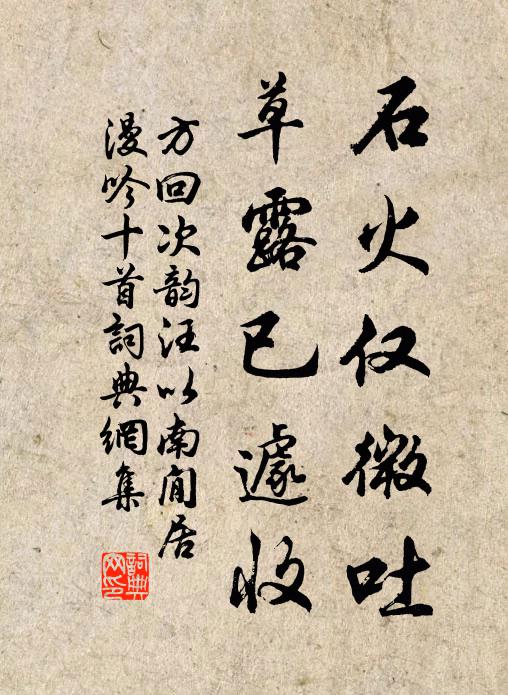 石火仅微吐
草露已遽收
方回次韵汪以南闲居
漫吟十首詞典網集
詞典
网印